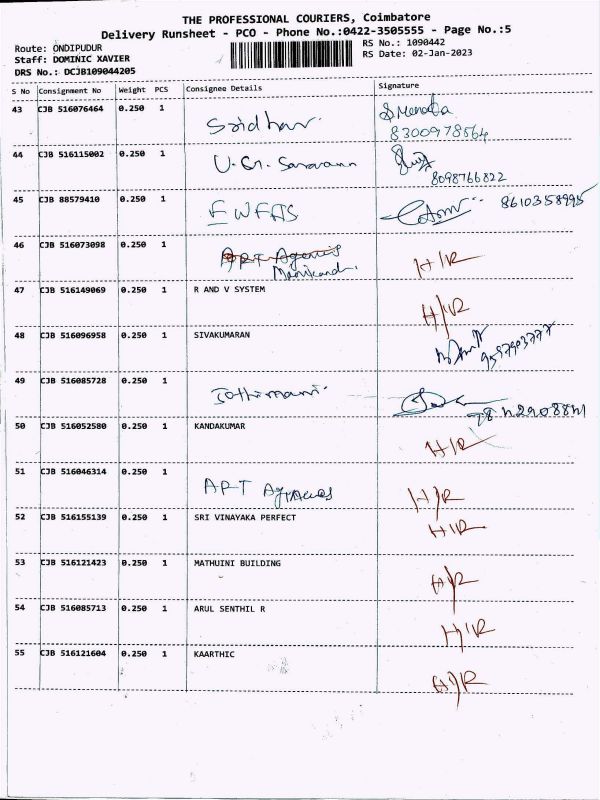 THE PROFESSIONAL COURIERS, Coimbatore
Delivery Runsheet - PCO - Phone No.:0422-3505555 - Page No.:5
Route: ONDIPUDUR
Staff: DOMINIC XAVIER
DRS No.: DCJB109044205
RS No.: 1090442
RS Date: 02-Jan-2023
S No Consignment No Weight PCS Consignee Details Signature
43 CJB 516076464 0.250 1 Sridhar. 8300978564
44 CJB 516115002 0.250 1 U.G. Saravana 8098766822
45 CJB 88579410 0.250 1 EWFAS 8610358995
46 CJB 516073098 0.250 1 APT Agencies H/R
Manikand.
47 CJB 516149069 0.250 1 R AND V SYSTEM H/R
48 CJB 516096958 0.250 1 SIVAKUMARAN
49 CJB 516085728 0.250 1 Jothimani.
50 CJB 516052580 0.250 1 KANDAKUMAR H/R
51 CJB 516046314 0.250 1 APT Agencies H/R
52 CJB 516155139 0.250 1 SRI VINAYAKA PERFECT H/R
53 CJB 516121423 0.250 1 MATHUINI BUILDING H/R
54 CJB 516085713 0.250 1 ARUL SENTHIL R H/R
55 CJB 516121604 0.250 1 KAARTHIC H/R